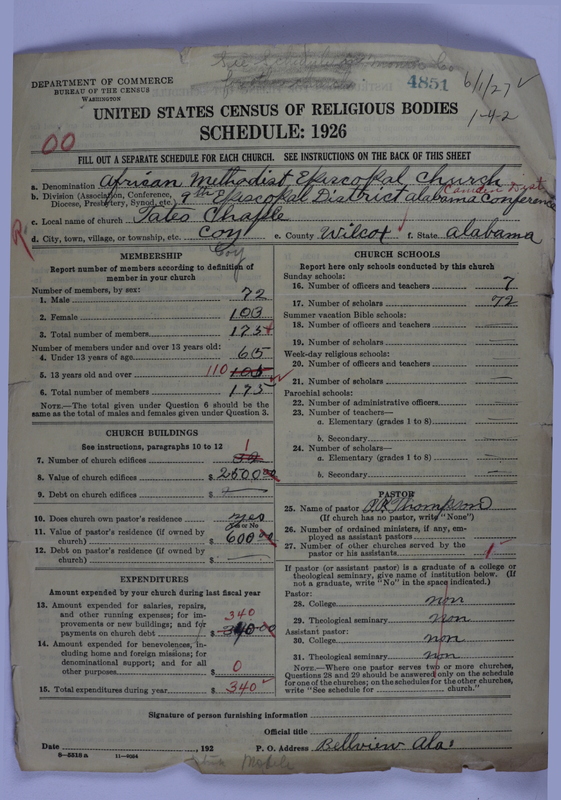 4851 6/1/27
DEPARTMENT OF COMMERCE
BUREAU OF THE CENSUS
WASHINGTON
1-4-2
UNITED STATES CENSUS OF RELIGIOUS BODIES
SCHEDULE: 1926
00
FILL OUT A SEPARATE SCHEDULE FOR EACH CHURCH. SEE INSTRUCTIONS ON THE BACK OF THIS SHEET
a. Denomination African Methodist Episcopal Church
Camden Dist
b. Division (Association, Conference, Diocese, Presbytery, Synod, etc.) 9th Episcopal District alabama Conference
c. Local name of church Tates Chaple
d. City, town, village, or township, etc. Coy e. County Wilcox f. State alabama
R
Coy
MEMBERSHIP
Report number of members according to definition of
member in your church
Number of members, by sex:
1. Male 72
2. Female 103
3. Total number of members 175
Number of members under and over 13 years old:
4. Under 13 years of age 65
5. 13 years old and over 110 105
6. Total number of members 175
NOTE.—The total given under Question 6 should be the
same as the total of males and females given under Question 3.
CHURCH BUILDINGS
See instructions, paragraphs 10 to 12
7. Number of church edifices 1
8. Value of church edifices $ 2500.00
9. Debt on church edifices $
10. Does church own pastor's residence? yes
Yes or No
11. Value of pastor's residence (if owned by
church) $ 600.00
12. Debt on pastor's residence (if owned by
church) $
EXPENDITURES
Amount expended by your church during last fiscal year
13. Amount expended for salaries, repairs,
and other running expenses; for im-
provements or new buildings; and for
payments on church debt $ 340 340.00
14. Amount expended for benevolences, in-
cluding home and foreign missions; for
denominational support; and for all
other purposes $ 0
15. Total expenditures during year $ 340
CHURCH SCHOOLS
Report here only schools conducted by this church
Sunday schools:
16. Number of officers and teachers 7
17. Number of scholars 72
Summer vacation Bible schools:
18. Number of officers and teachers
19. Number of scholars
Week-day religious schools:
20. Number of officers and teachers
21. Number of scholars
Parochial schools:
22. Number of administrative officers
23. Number of teachers—
a. Elementary (grades 1 to 8)
b. Secondary
24. Number of scholars—
a. Elementary (grades 1 to 8)
b. Secondary
PASTOR
25. Name of pastor Thompson
(If church has no pastor, write "None")
26. Number of ordained ministers, if any, em-
ployed as assistant pastors
27. Number of other churches served by the
pastor or his assistants 1
If pastor (or assistant pastor) is a graduate of a college or
theological seminary, give name of institution below. (If
not a graduate, write "No" in the space indicated.)
Pastor:
28. College non
29. Theological seminary non
Assistant pastor:
30. College non
31. Theological seminary non
NOTE.—Where one pastor serves two or more churches,
Questions 28 and 29 should be answered only on the schedule
for one of the churches; on the schedules for the other churches,
write "See schedule for church."
Signature of person furnishing information
Official title
Date , 192 P. O. Address Bellview Ala.